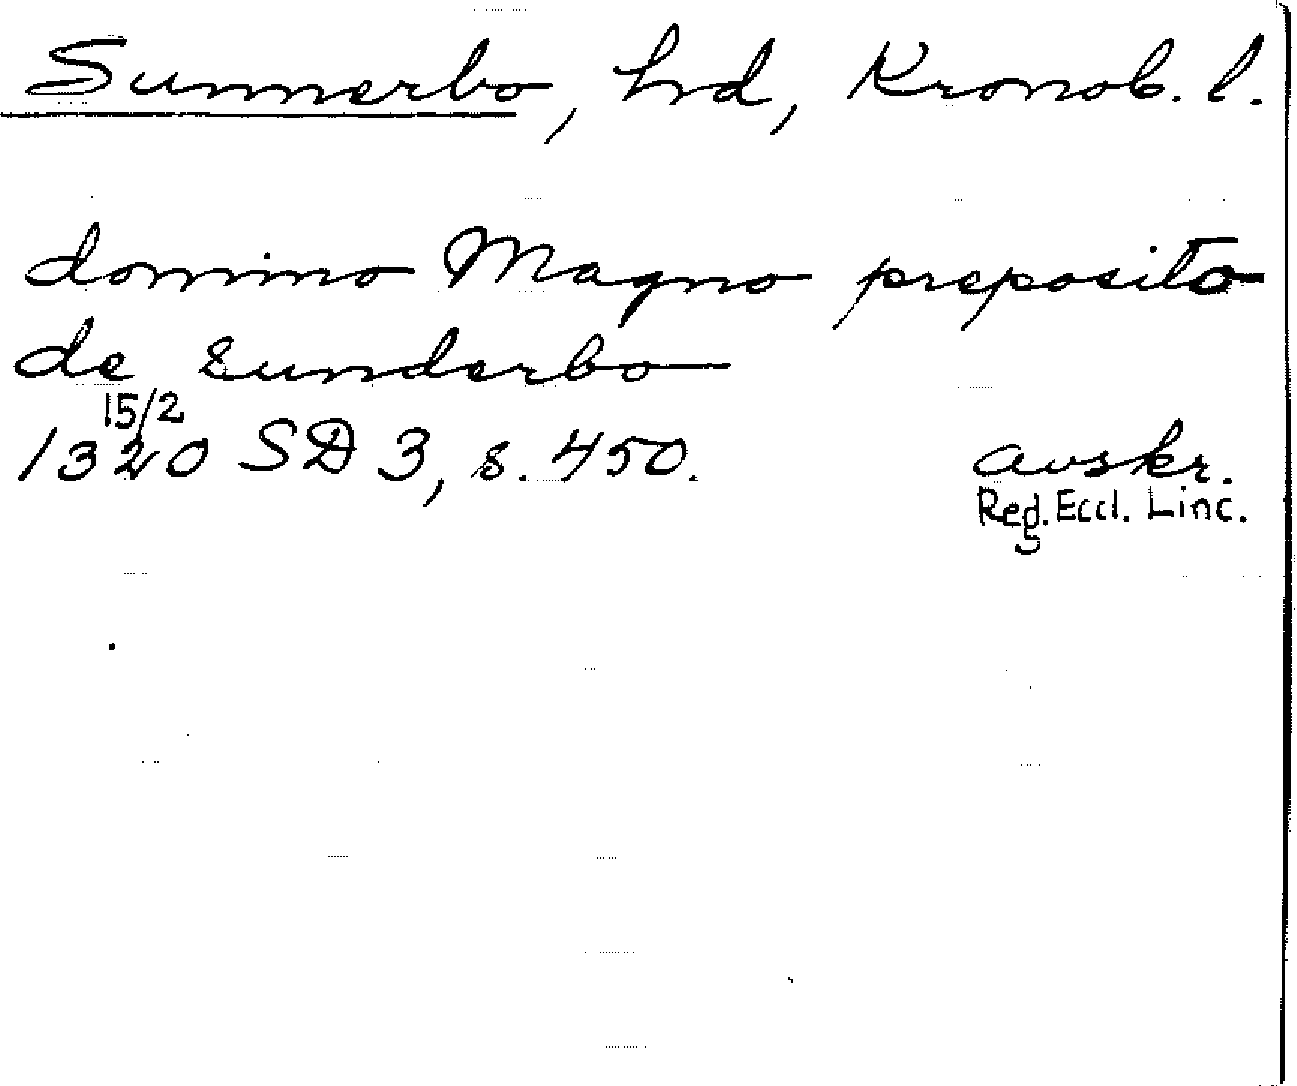 Sunnerbo, hd, Kronob. l.
domino Magno preposito
de sunderbo
15/2
1320 SD 3, s. 450. avskr.
Reg. Eccl. Linc.